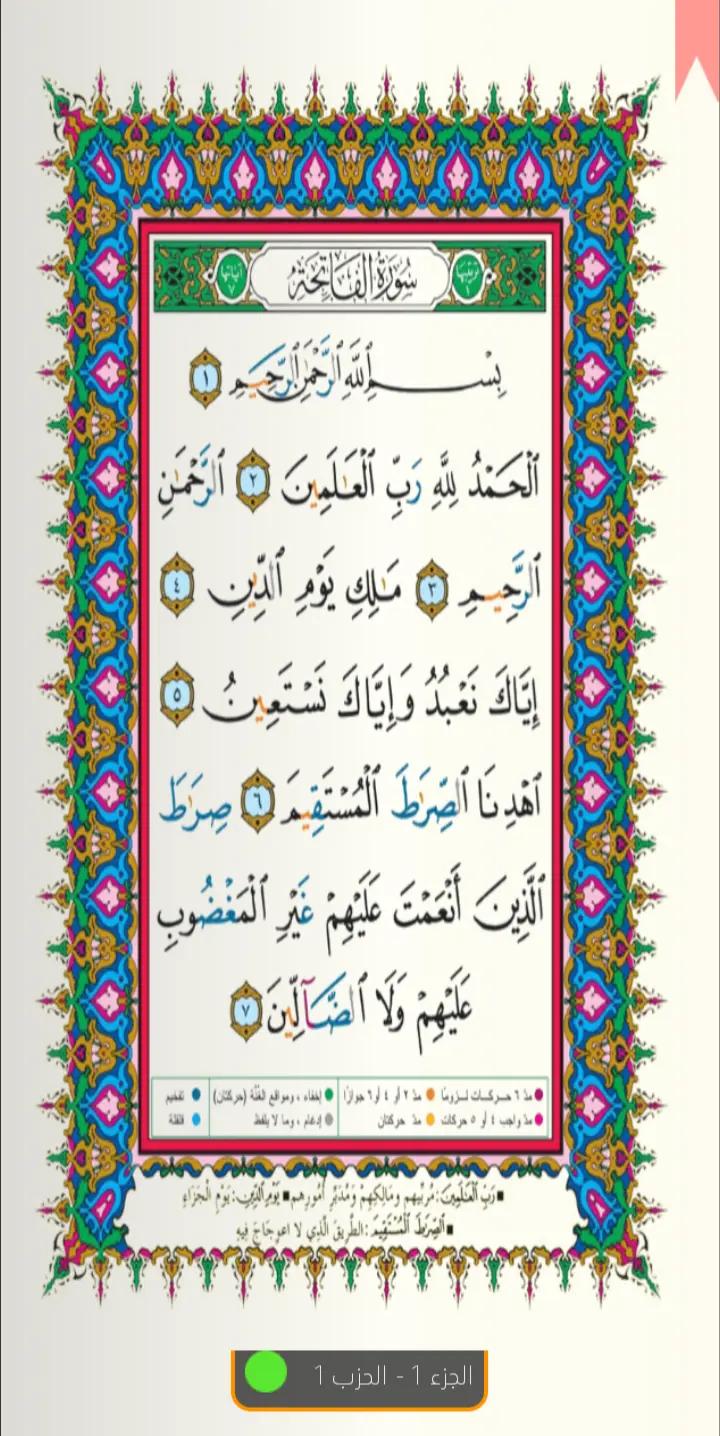 ترتيبها ١ سُورَةُ الفَاتِحَةِ آياتها ٧
بِسْمِ ٱللَّهِ ٱلرَّحْمَٰنِ ٱلرَّحِيمِ ١
ٱلْحَمْدُ لِلَّهِ رَبِّ ٱلْعَٰلَمِينَ ٢ ٱلرَّحْمَٰنِ
ٱلرَّحِيمِ ٣ مَٰلِكِ يَوْمِ ٱلدِّينِ ٤
إِيَّاكَ نَعْبُدُ وَإِيَّاكَ نَسْتَعِينُ ٥
ٱهْدِنَا ٱلصِّرَٰطَ ٱلْمُسْتَقِيمَ ٦ صِرَٰطَ
ٱلَّذِينَ أَنْعَمْتَ عَلَيْهِمْ غَيْرِ ٱلْمَغْضُوبِ
عَلَيْهِمْ وَلَا ٱلضَّآلِّينَ ٧
مدّ ٦ حركات لزوماً مدّ ٢ أو ٤ أو ٦ جوازاً إخفاء ، ومواقع الغنّة (حركتان) تفخيم
مدّ واجب ٤ أو ٥ حركات مدّ حركتان إدغام ، وما لا يلفظ قلقلة
رَبِّ ٱلْعَٰلَمِينَ: مُرَبِّيهِم وَمَالِكِهِمْ وَمُدَبِّرِ أُمُورِهِم يَوْمِ ٱلدِّينِ: يَوْمِ الْجَزَاءِ
ٱلصِّرَٰطَ ٱلْمُسْتَقِيمَ: الطَّرِيقَ الَّذِي لا اعوِجَاجَ فِيهِ
الجزء 1 - الحزب 1